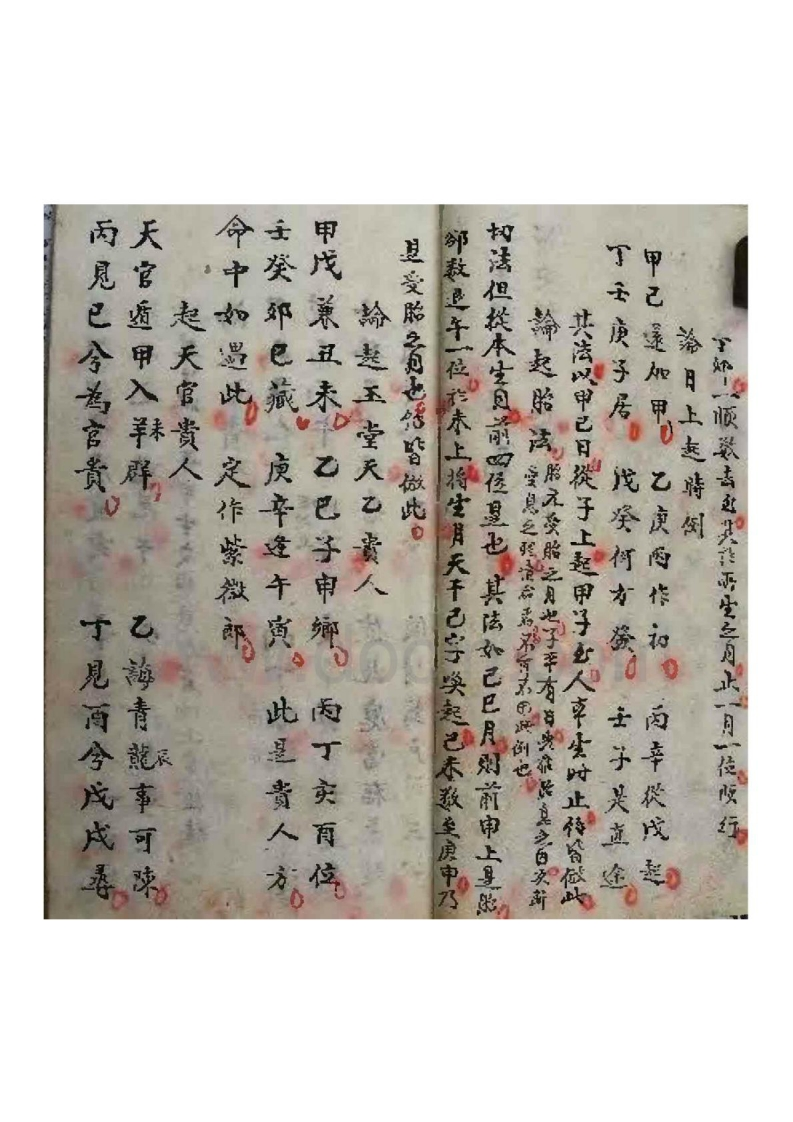 丁卯一一順數去至其所生之月止一月一位順行
論日上起時例
甲己還加甲 乙庚丙作初 丙辛從戊起
丁壬庚子居 戊癸何方發 壬子是直途
其法以甲己日從子上起甲子至人本生时止侍皆倣此
論起胎法 胎者受胎之月也子平有日
切法但從本生月前四位是也 其法如己巳月則前申上是胎
卻数退午一位於未上将生月天干己字喚起己未数至庚申乃
是受胎之月也侍皆倣此
論起玉堂天乙貴人
甲戊兼丑未 乙己子申鄉 丙丁亥酉位
壬癸卯巳藏 庚辛逢午寅 此是貴人方
命中如遇此 定作紫微郎
起天官貴人
天官遁甲入羊未群 乙誨青龍辰事可陳
丙見巳兮為官貴 丁見酉兮戌戌尋